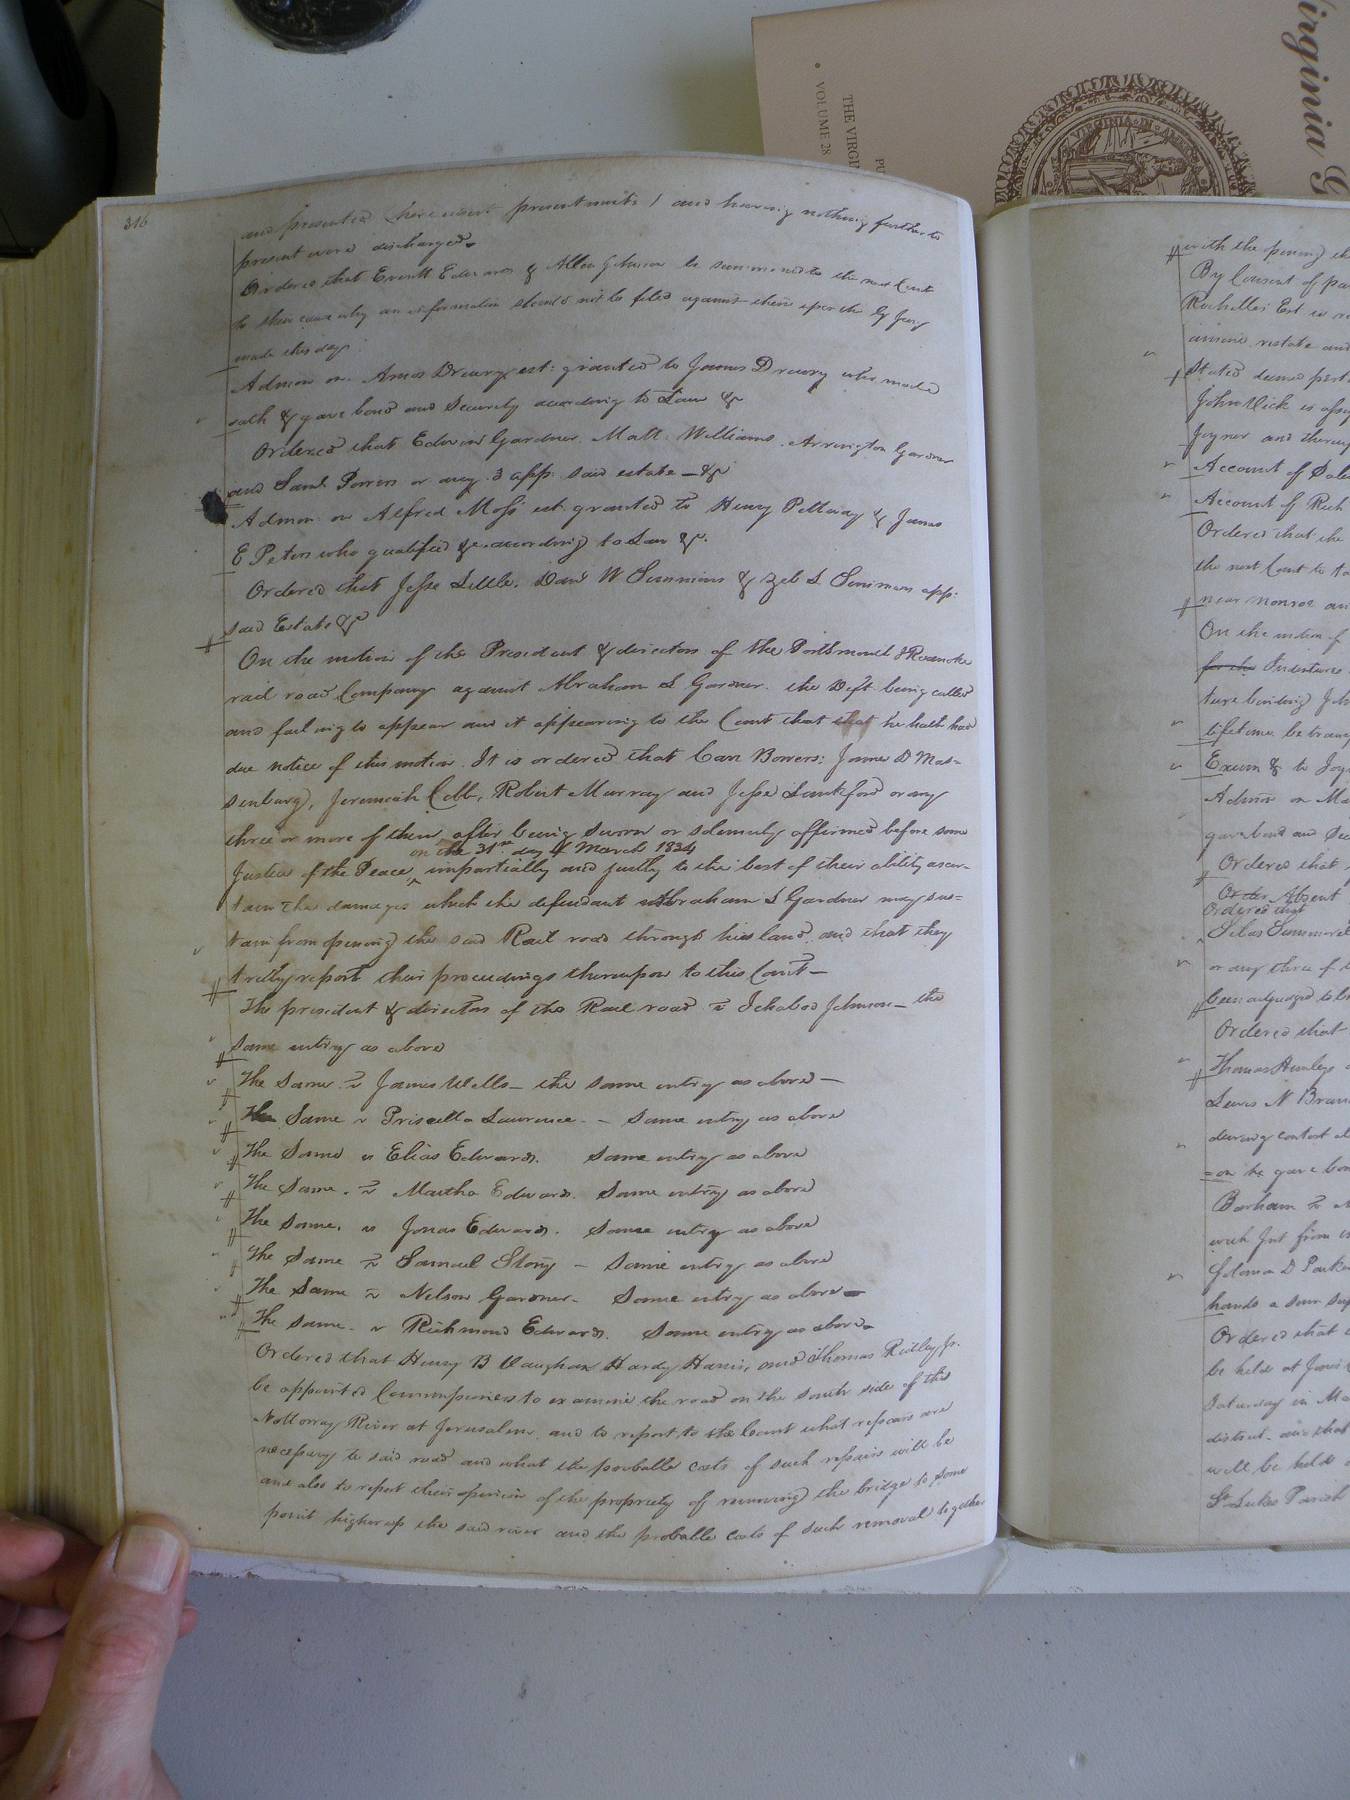 Virginia G
THE VIRGI
PU
VOLUME 28
VIRGINIA
316
and presented presentments / and having nothing further to
present were discharged.
Ordered that Everett Edwards & Allen Johnson be summoned to the next Court
to shew cause why an information should not be filed against them upon the G Jury
made this day
Admon on Amos Drewry est: granted to James Drewry who made
oath & gave bond and Security according to Law &
Ordered that Edwin Gardner. Matt. Williams. Arrington Gardner
and Saml Powers or any 3 app. said estate — &
Admon on Alfred Moss est. granted to Henry Pettway & James
E Peters who qualified &c. according to Law &
Ordered that Jesse Little. Danl W Simmons & Zeb S Simmons app:
said Estate &
On the motion of the President & directors of the Portsmouth & Roanoke
rail road Company against Abraham S Gardner. the Deft being called
and failing to appear and it appearing to the Court that that he hath had
due notice of this motion. It is ordered that Carr Bowers; James D Mas=
senburg, Jeremiah Cobb, Robert Murray and Jesse Lankford or any
three or more of them after being sworn or solemnly affirmed before some
on the 31st day of March 1834
Justice of the Peace, impartially and justly to the best of their ability ascer-
tain the damages which the defendant Abraham S Gardner may sus=
tain from opening the said Rail road through his land, and that they
report their proceedings thereupon to this Court —
The president & directors of the Rail road vs Ichabod Johnson — the
same entry as above
The Same vs James Wells — the same entry as above —
The Same v Priscilla Lawrence. — Same entry as above
The Same vs Elias Edwards. Same entry as above
The Same. vs Martha Edwards. Same entry as above
The Same. vs Jonas Edwards. Same entry as above
The Same vs Samuel Story — Same entry as above
The Same vs Nelson Gardner. Same entry as above
The same. v Richmond Edwards. Same entry as above
Ordered that Henry B Vaughan Hardy Harris, and Thomas Ridley Jr.
be appointed Commissioners to examine the road on the south side of the
Nottoway River at Jerusalem, and to report to the Court what repairs are
necessary to said road and what the probable costs of such repairs will be
and also to report their opinion of the propriety of removing the bridge to some
point higher up the said river and the probable costs of such removal together
with the
By Consent of pa
Rochelles Est
restate and
stated deemed
John Vick
Joyner and
Account of Sale
Account of Rich
Ordered that the
the next Court to
near Monroe an
On the motion of
for the Indenture
ture binding
lifetime be
Exum & to
Admr on Ma
gave bond and Sec
Ordered that
Order Absent
Ordered that
Silas Summerell
or any three of
been adjudged to
Ordered that
Thomas
Lewis N
during contest
=on he gave bon
Barham vs
with
Solomon D Parker
hands a sum
Ordered that
be held at
Saturday in Ma
district. and that
will be held
St Lukes Parish